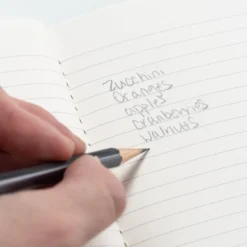 zucchini
oranges
apples
cranberries
walnuts